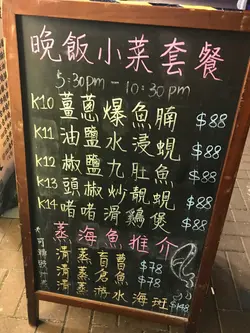 晚飯小菜套餐
5:30pm — 10:30pm
K10 薑蔥爆魚腩 $88
K11 油鹽水浸蜆 $88
K12 椒鹽九肚魚 $88
K13 頭椒炒靚蜆 $88
K14 啫啫滑雞煲 $88
蒸海魚推介
清蒸盲曹 $78
清蒸 $78
清蒸游水海班